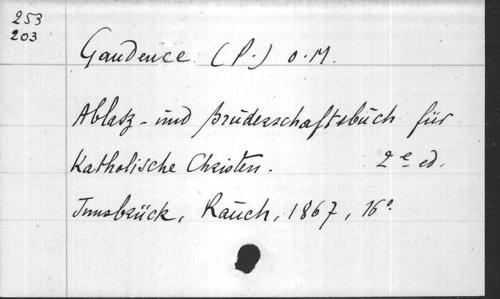 253
203
Gaudence (P.) o. M.
Ablasz- und Bruderschaftsbuch für
Katholische Christen. 2e ed.
Innsbrück, Rauch, 1867, 16°.